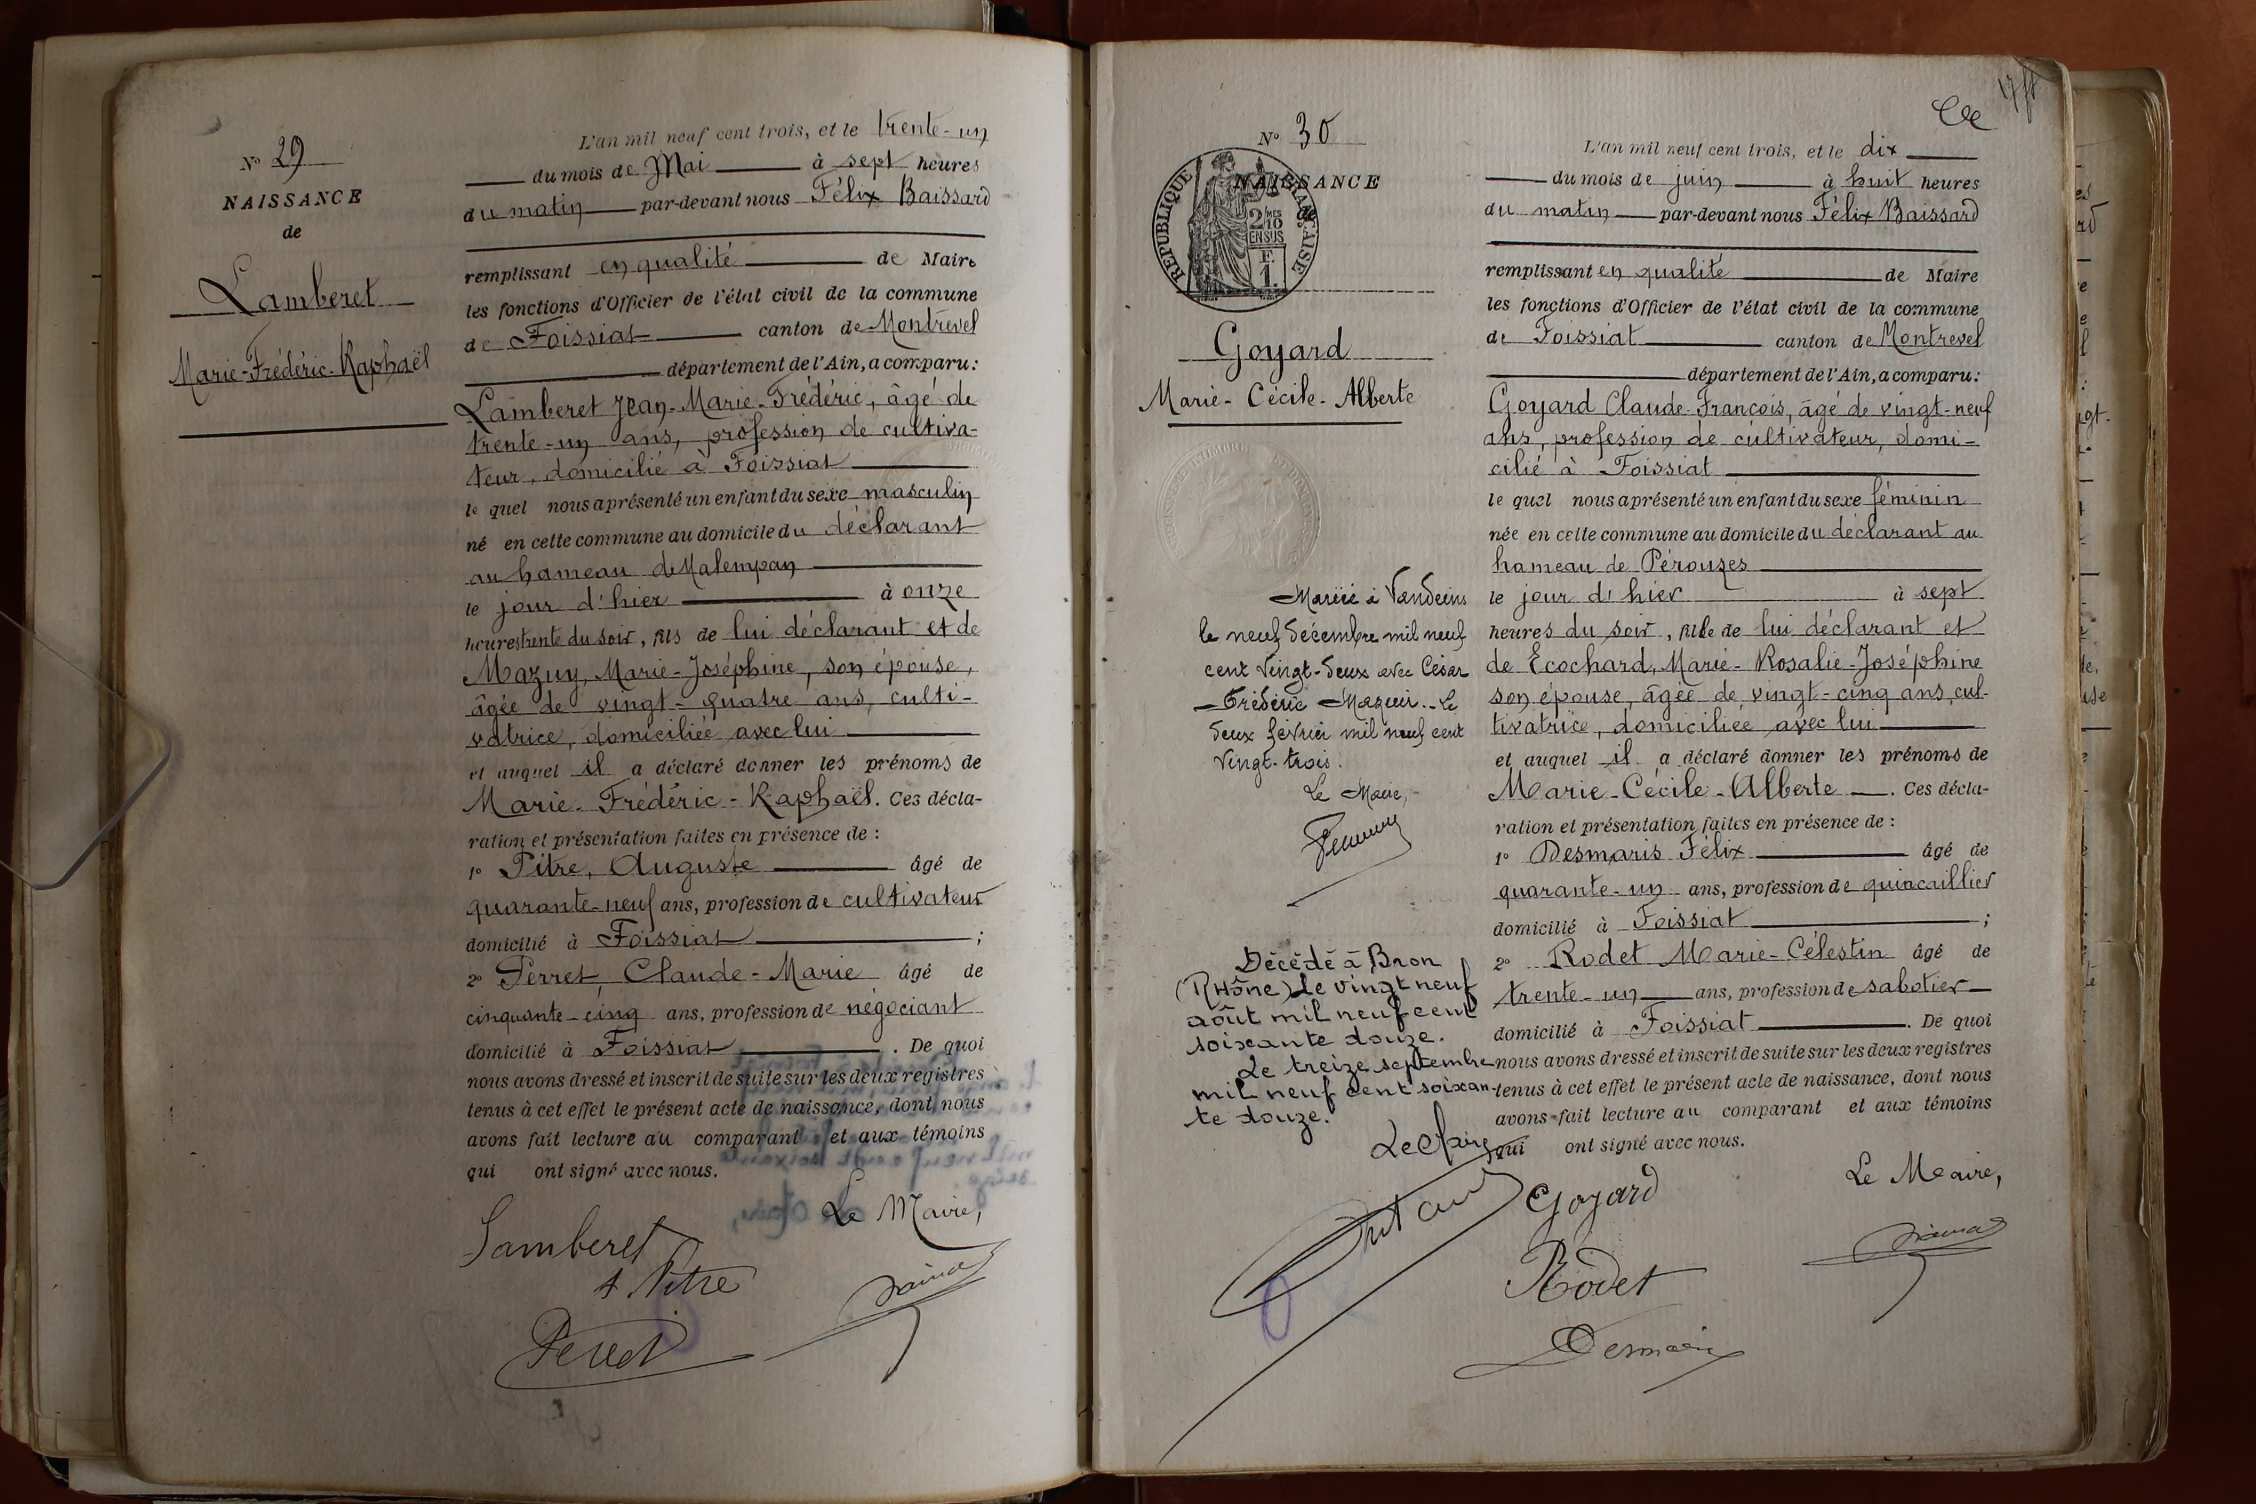 N° 29
NAISSANCE
de
Lamberet
Marie-Frédéric-Raphaël
L'an mil neuf cent trois, et le trente-un
du mois de Mai à sept heures
du matin par-devant nous Félix Baissard
remplissant en qualité de Maire
les fonctions d'Officier de l'état civil de la commune
de Foissiat canton de Montrevel
département de l'Ain, a comparu:
Lamberet Jean-Marie-Frédéric, âgé de
trente-un ans, profession de cultiva-
teur, domicilié à Foissiat
le quel nous a présenté un enfant du sexe masculin
né en cette commune au domicile du déclarant
au hameau de Malempan
le jour d'hier à onze
heures trente du soir, fils de lui déclarant et de
Mazuy, Marie-Joséphine, son épouse,
âgée de vingt-quatre ans, culti-
vatrice, domiciliée avec lui
et auquel il a déclaré donner les prénoms de
Marie-Frédéric-Raphaël. Ces décla-
ration et présentation faites en présence de :
1° Pitre, Auguste âgé de
quarante-neuf ans, profession de cultivateur
domicilié à Foissiat ;
2° Perret, Claude-Marie âgé de
cinquante-cinq ans, profession de négociant
domicilié à Foissiat . De quoi
nous avons dressé et inscrit de suite sur les deux registres
tenus à cet effet le présent acte de naissance, dont nous
avons fait lecture au comparant et aux témoins
qui ont signé avec nous.
Le Maire,
Lamberet
A Pitre
Perret
N° 30
NAISSANCE
de
RÉPUBLIQUE FRANÇAISE
2/10
EN SUS
F.
1.
Goyard
Marie-Cécile-Alberte
Marié à Vandeins
le neuf décembre mil neuf
cent vingt-deux avec César
-Frédéric Mazuir.-Le
deux février mil neuf cent
vingt-trois.
Le Maire,
Décédé à Bron
(Rhône) le vingt neuf
août mil neuf cent
soixante douze.
Le treize septembre
mil neuf cent soixan-
te douze.
Le Maire
L'an mil neuf cent trois, et le dix
du mois de juin à huit heures
du matin par-devant nous Félix Baissard
remplissant en qualité de Maire
les fonctions d'Officier de l'état civil de la commune
de Foissiat canton de Montrevel
département de l'Ain, a comparu:
Goyard Claude-François, âgé de vingt-neuf
ans, profession de cultivateur, domi-
cilié à Foissiat
le quel nous a présenté un enfant du sexe féminin
née en cette commune au domicile du déclarant au
hameau de Pérouzes
le jour d'hier à sept
heures du soir, fille de lui déclarant et
de Ecochard, Marie-Rosalie-Joséphine
son épouse, âgée de vingt-cinq ans, cul-
tivatrice, domiciliée avec lui
et auquel il a déclaré donner les prénoms de
Marie-Cécile-Alberte . Ces décla-
ration et présentation faites en présence de :
1° Desmaris Félix âgé de
quarante-un ans, profession de quincaillier
domicilié à Foissiat ;
2° Rodet Marie-Célestin âgé de
trente-un ans, profession de sabotier
domicilié à Foissiat . De quoi
nous avons dressé et inscrit de suite sur les deux registres
tenus à cet effet le présent acte de naissance, dont nous
avons fait lecture au comparant et aux témoins
qui ont signé avec nous.
Le Maire,
Goyard
Rodet
Desmaris